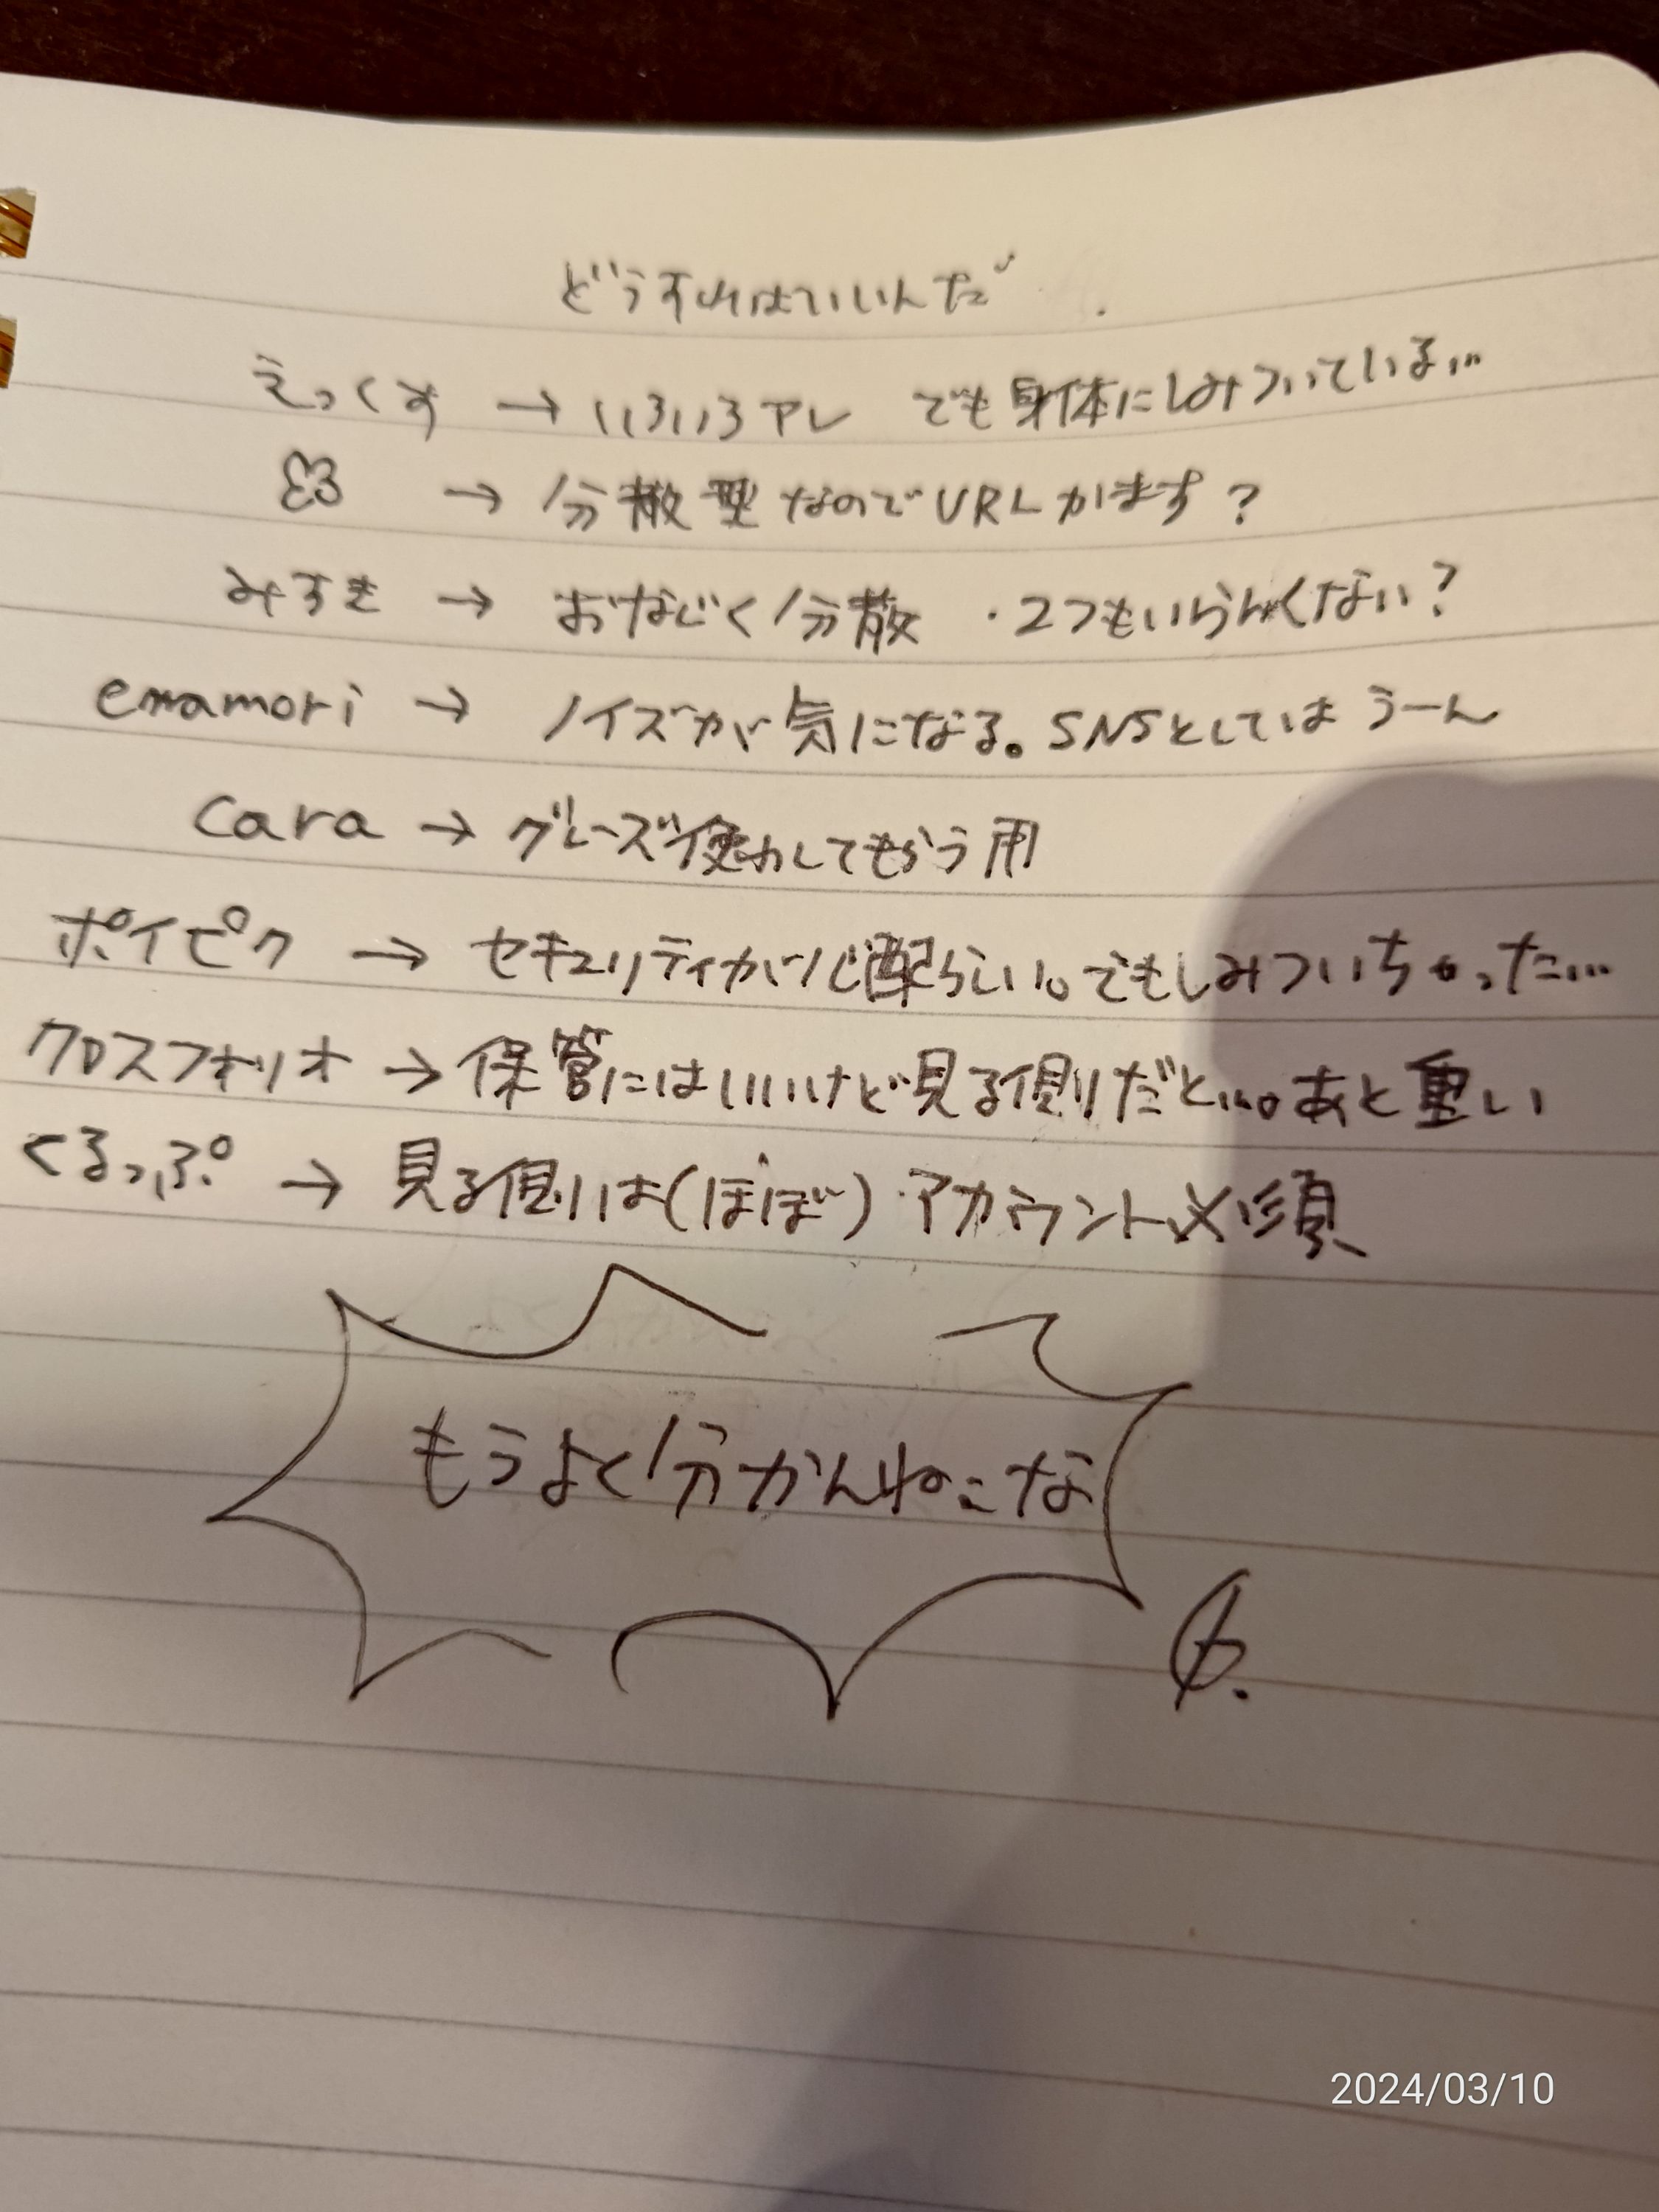 どうすればいいんだ.
えっくす → いろいろアレ でも身体にしみついている…
→ 分散型なのでURLかます?
みすき → おなじく分散 ・2つもいらんくない?
emamori → ノイズが気になる。SNSとしてはうーん
Cara → グレーズ使わしてもらう用
ポイピク → セキュリティが心配らしい。でもしみついちゃった…
クロスフォリオ → 保管にはいいけど見る側だと…。あと重い
くるっぷ → 見る側は(ほぼ)アカウント必須
もうよく分かんねこな
2024/03/10